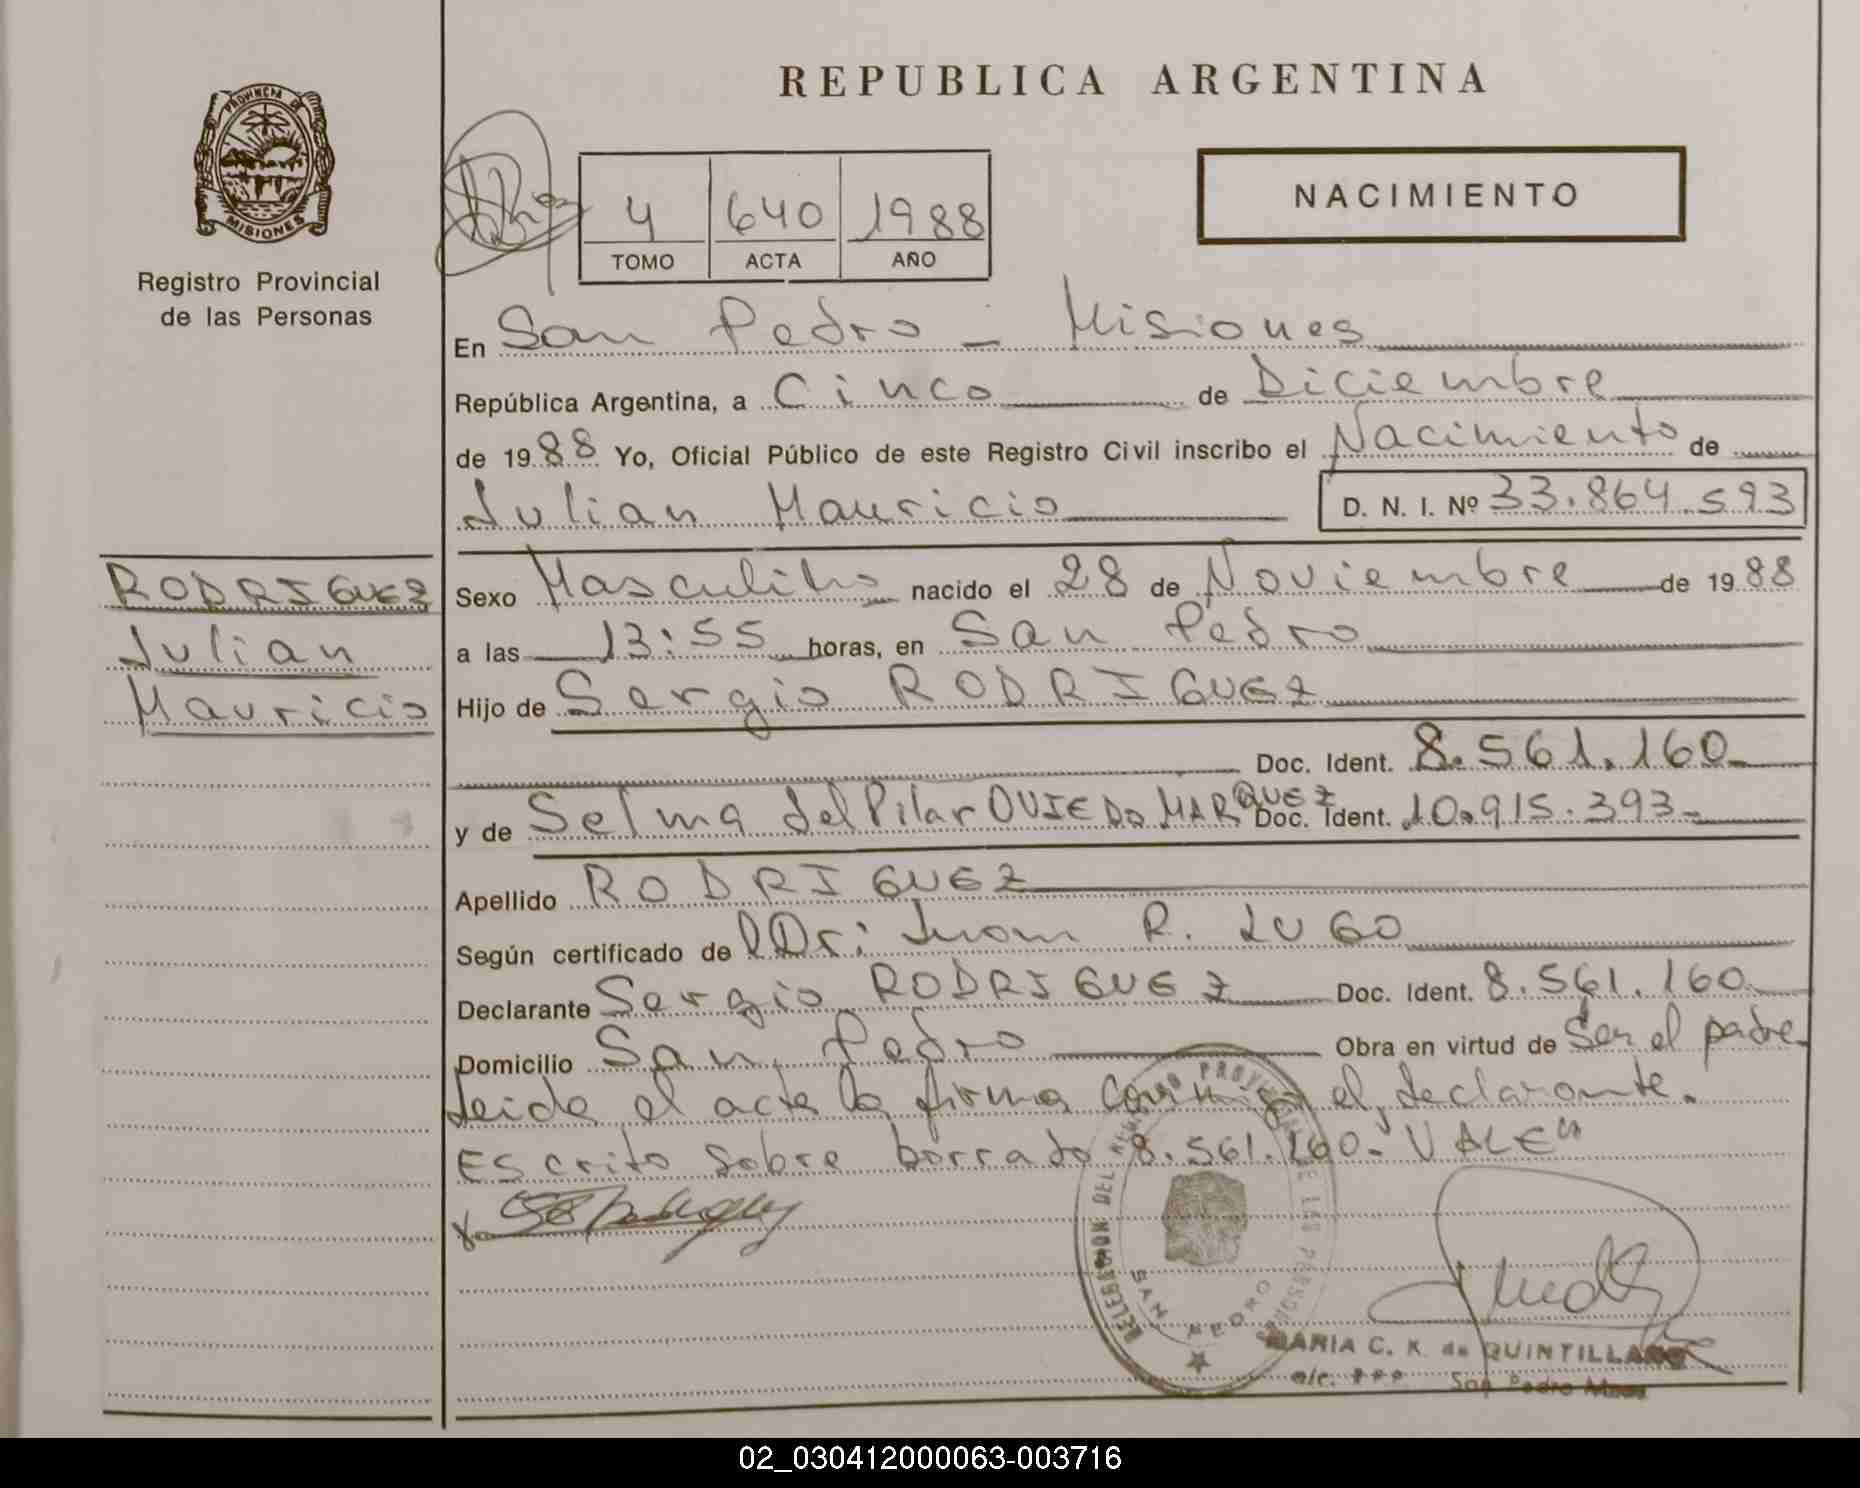 REPUBLICA ARGENTINA
PROVINCIA DE
MISIONES
Registro Provincial
de las Personas
4 640 1988
TOMO ACTA AÑO
NACIMIENTO
En San Pedro - Misiones
República Argentina, a Cinco de Diciembre
de 1988 Yo, Oficial Público de este Registro Civil inscribo el Nacimiento de
Julian Mauricio D. N. I. Nº 33.864.593
RODRIGUEZ
Julian
Mauricio
Sexo Masculino nacido el 28 de Noviembre de 1988
a las 13:55 horas, en San Pedro
Hijo de Sergio RODRIGUEZ
Doc. Ident. 8.561.160-
y de Selma del Pilar OVIEDO MARQUEZ Doc. Ident. 10.915.393-
Apellido RODRIGUEZ
Según certificado de Dr: Juan R. LUGO
Declarante Sergio RODRIGUEZ Doc. Ident. 8.561.160-
Domicilio San Pedro Obra en virtud de Ser el padre-
Leida el acta la firma conmigo el declarante.
Escrito sobre borrado 8.561.160-"VALE"
DELEGACION DEL REGISTRO PROVINCIAL DE LAS PERSONAS
SAN PEDRO
MARIA C. K. de QUINTILLANO
San Pedro Mnes
02_030412000063-003716